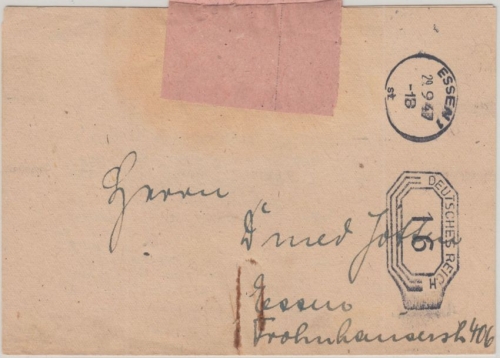 ESSEN 1
2.9.47
-18
st
DEUTSCHES REICH
16
H
Herrn
Dr med
Essen
Frohnhauserstr 406